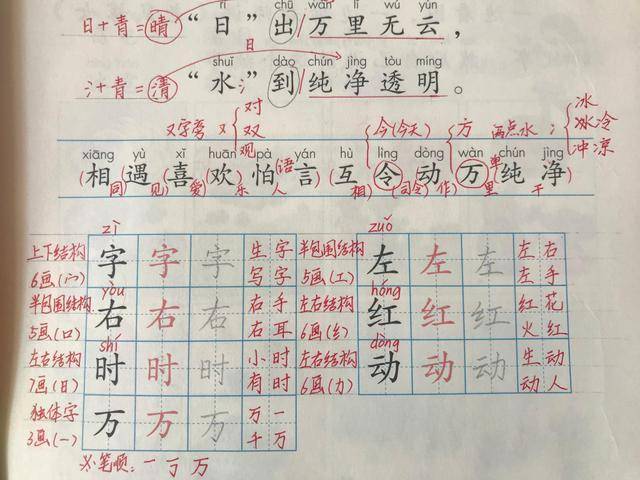 rì chū wàn lǐ wú yún
日+青=晴 “日”出万里无云，
日
shuǐ dào chún jìng tòu míng
氵+青=清 “水”到纯净透明。
氵
对 冰
又字旁 又 双 今(今天) 方 两点水 冫 冰冷
观 冲凉
xiāng yù xǐ huān pà yán hù lìng dòng wàn chún jìng
相遇喜欢怕言互令动万纯净
(同)(见)(爱)(乐)(语)人 相)(司令)作)里 单 干
zì zuǒ
上下结构 字字字 生字 半包围结构 左左左 左右
6画(宀) 写字 5画(工) 左手
yòu hóng
半包围结构 右右右 右手 左右结构 红红红 红花
5画(口) 右耳 6画(纟) 火红
shí dòng
左右结构 时时时 小时 左右结构 动动动 生动
7画(日) 有时 6画(力) 动人
独体字 万万万 万一
3画(一) 千万
笔顺：一 丁 万